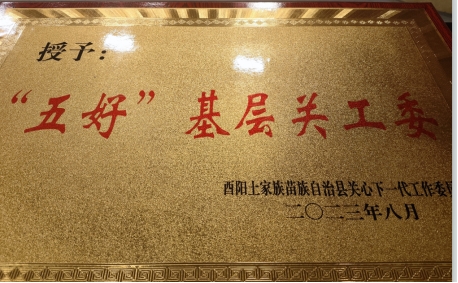 授予：
“五好”基层关工委
酉阳土家族苗族自治县关心下一代工作委
二〇二三年八月